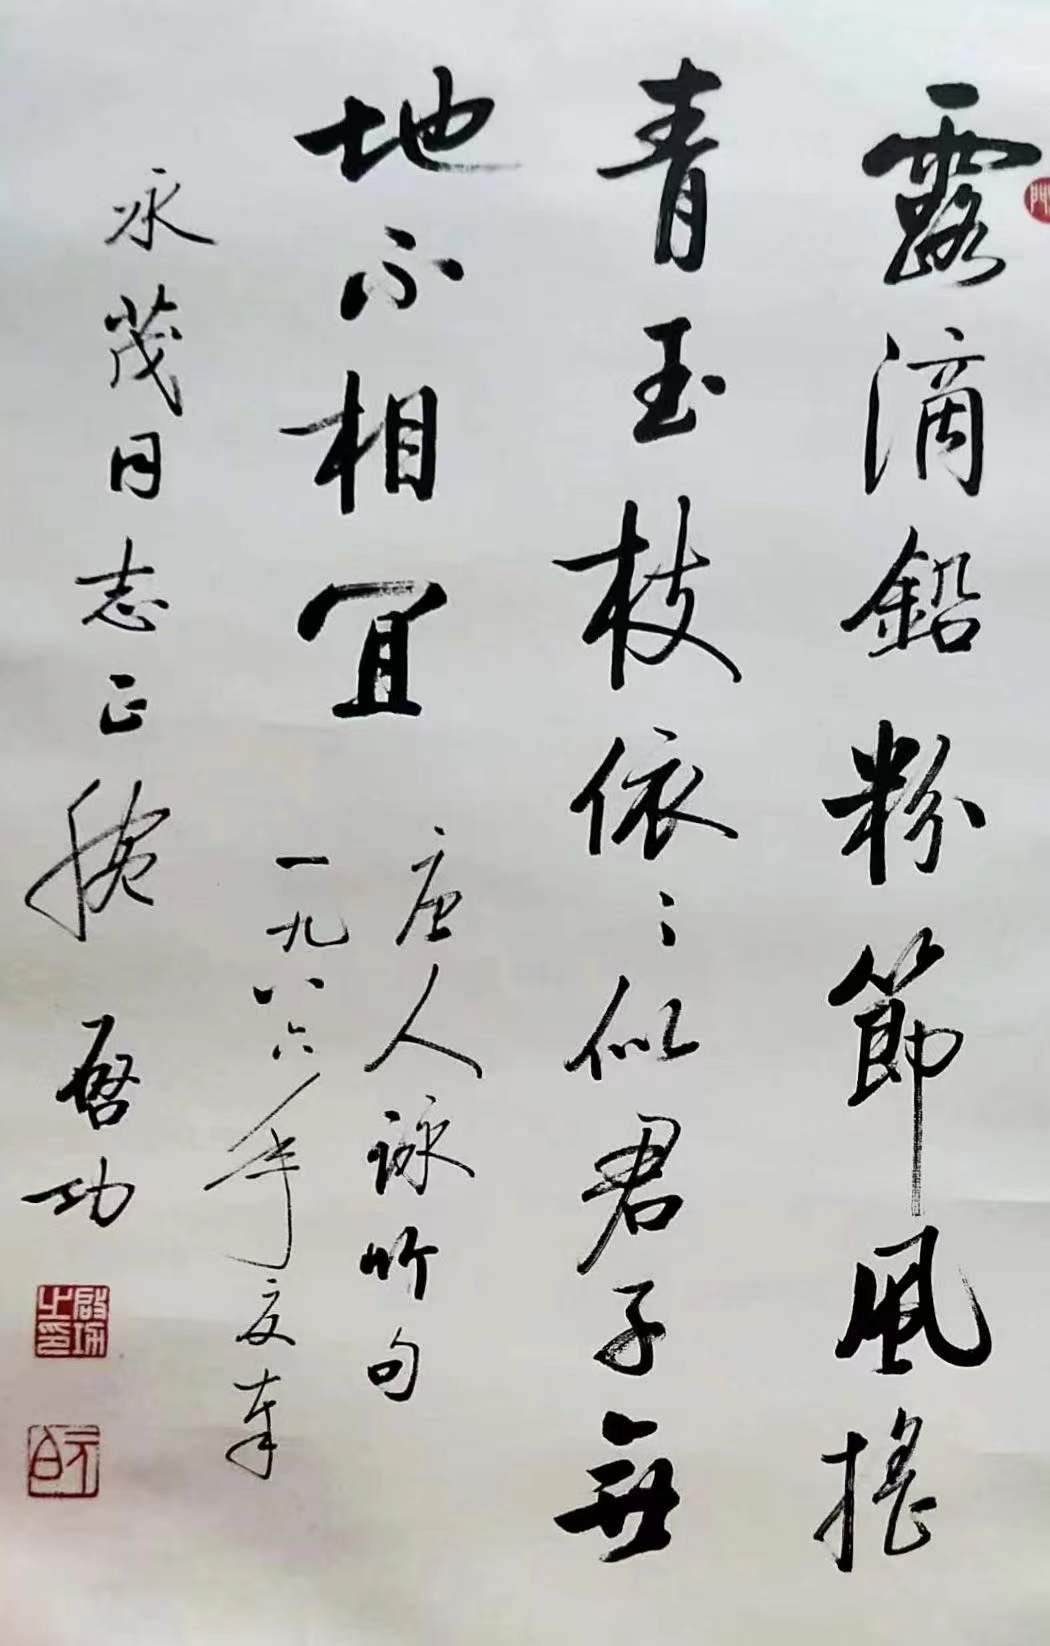 露滴鉛粉節風搖
青玉枝依〻似君子無
地不相宜
唐人詠竹句
一九八六年夏奉
永茂同志正腕
啓功
啟功之印
元白